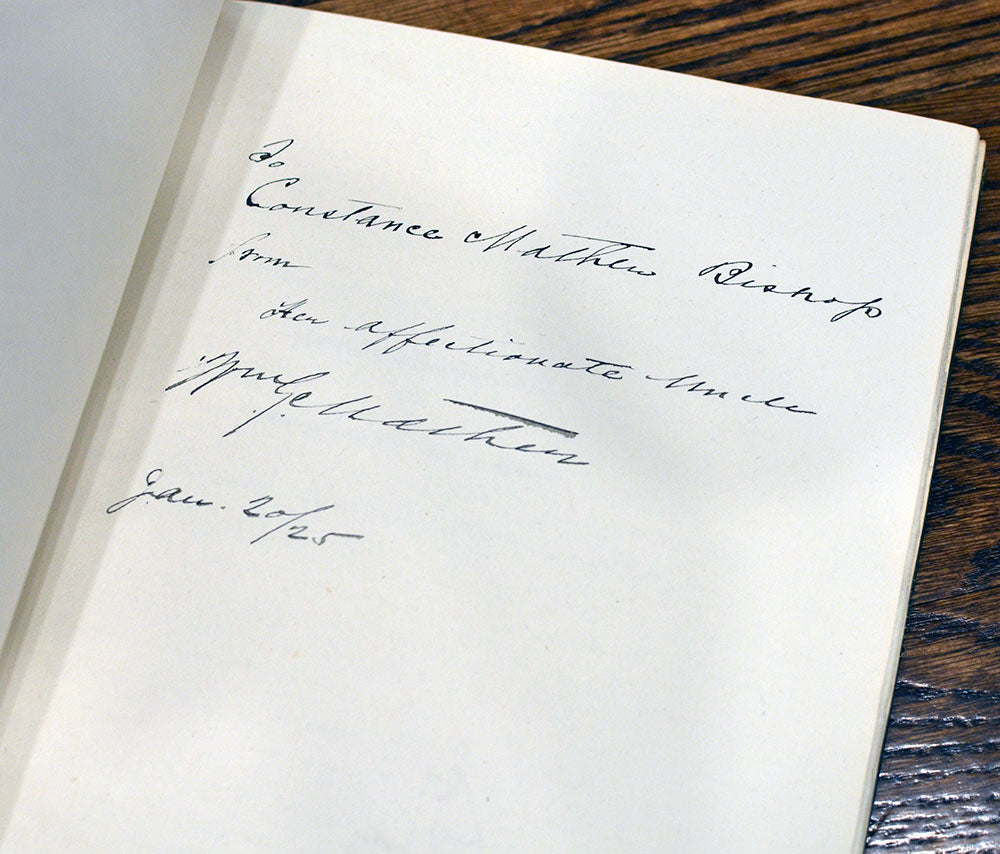 To
Constance Mather Bishop
from
Her affectionate Uncle
Wm G. Mather
Jan. 20/25